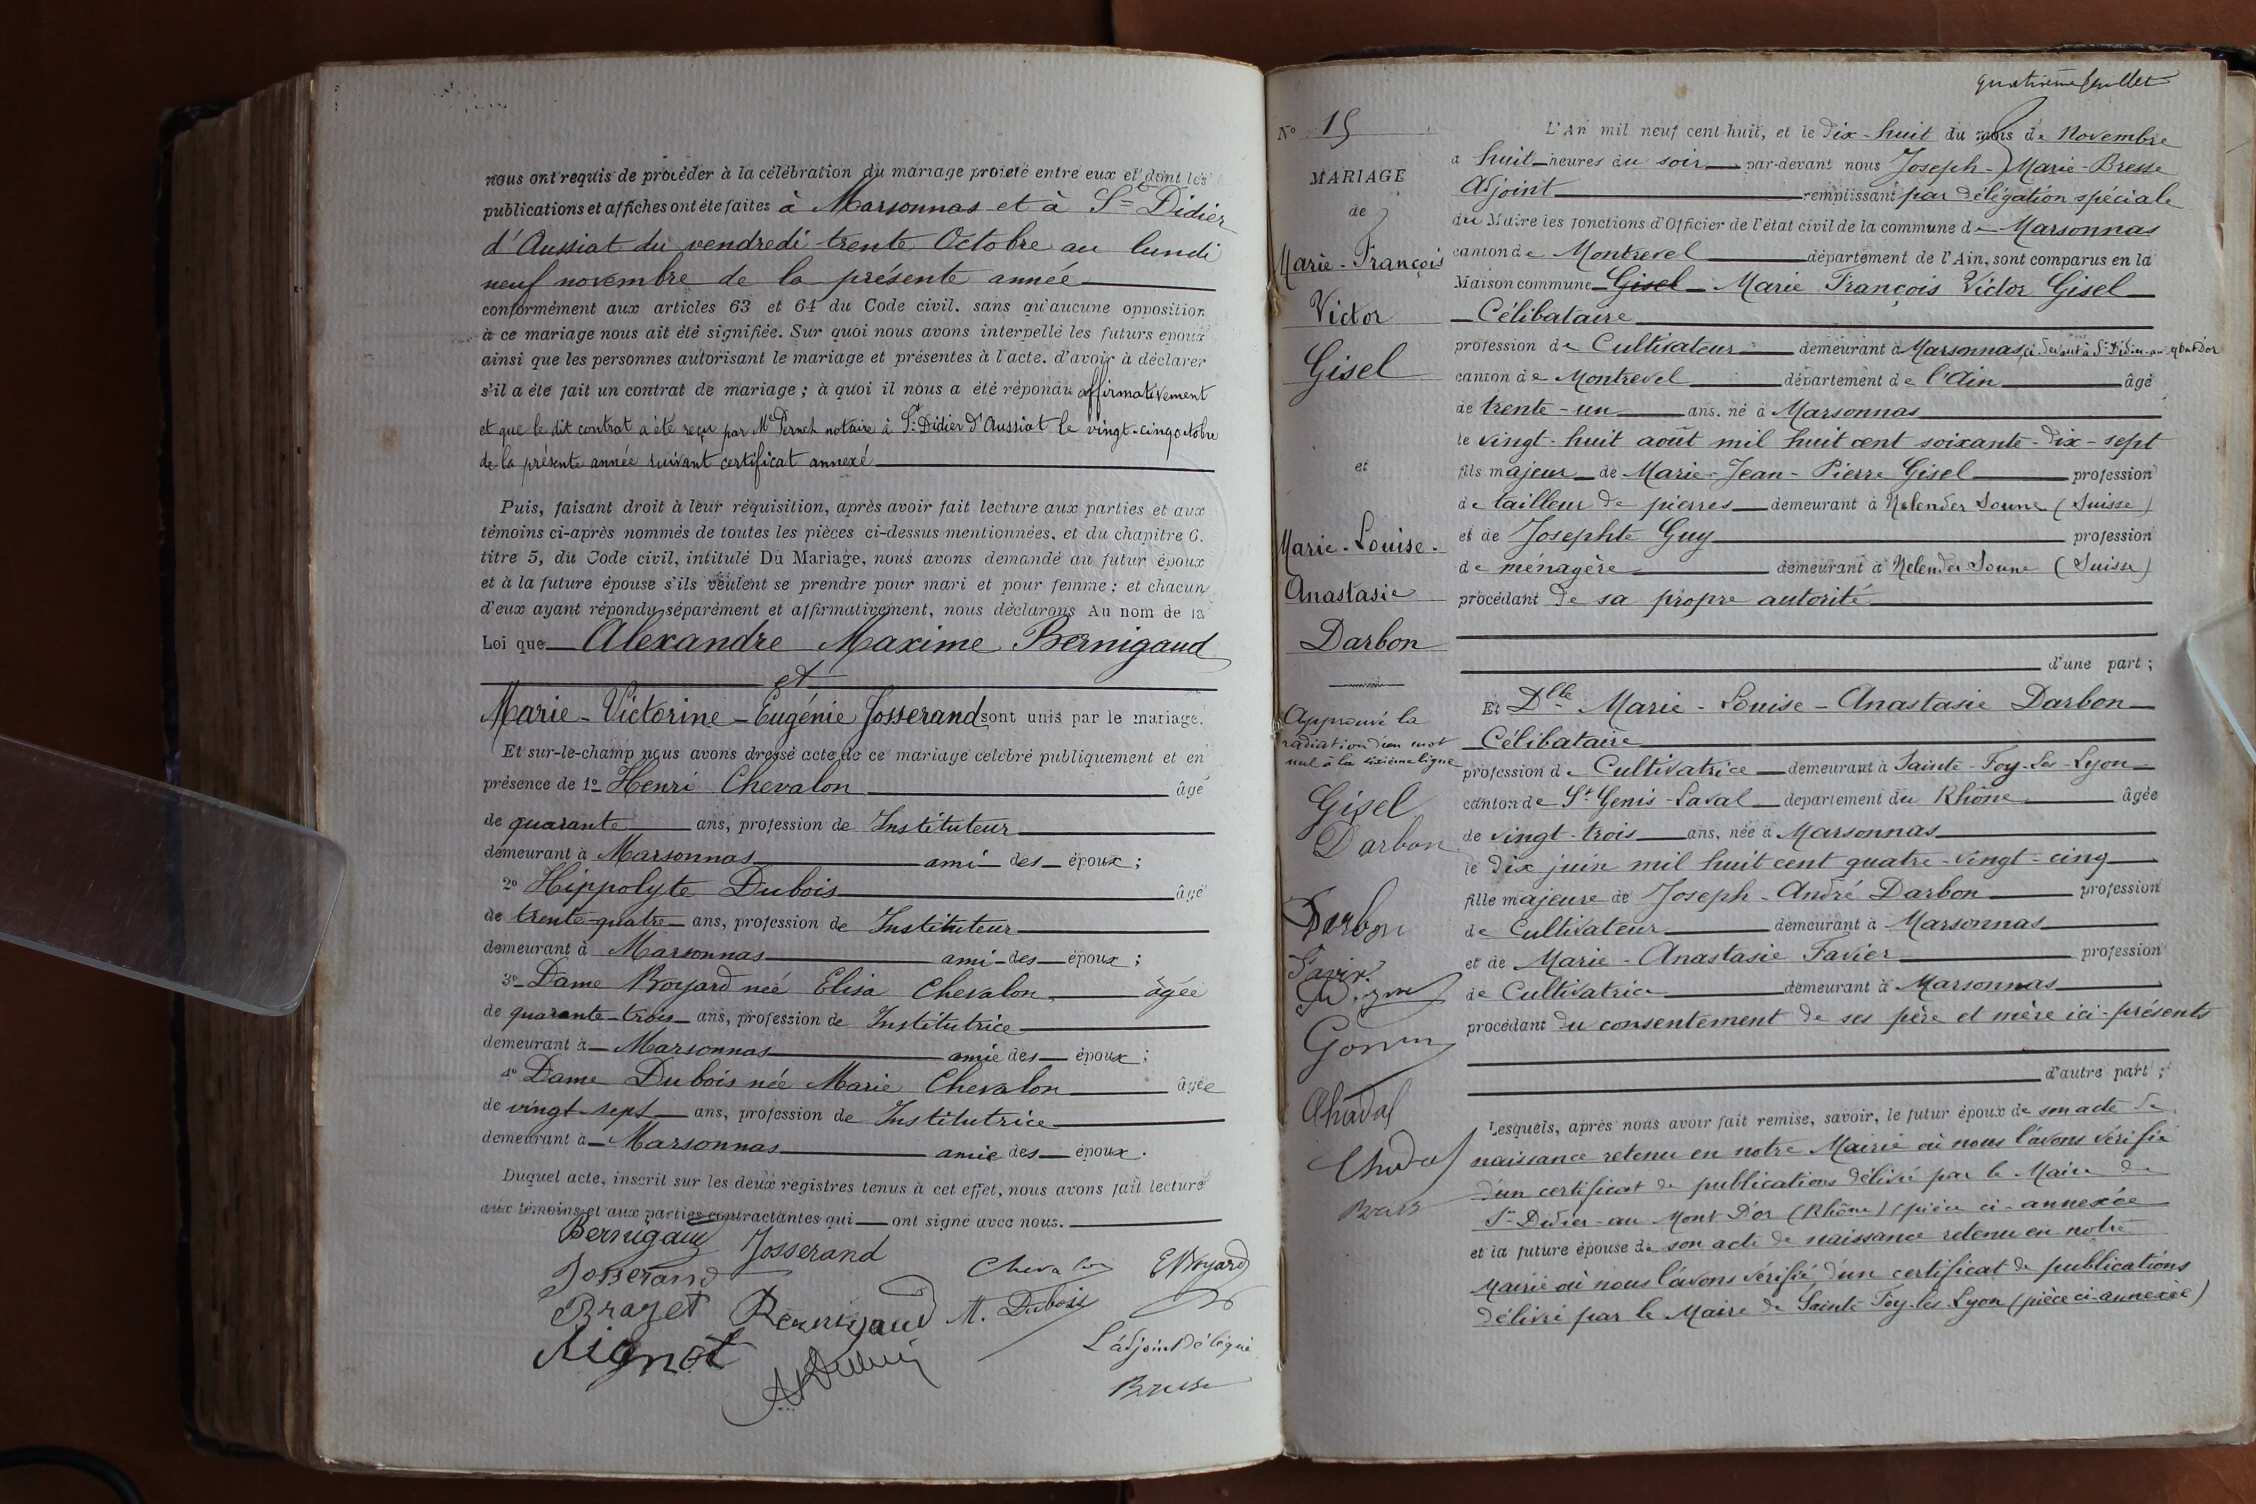 nous ont requis de procéder à la célébration du mariage projeté entre eux et dont les
publications et affiches ont été faites à Marsonnas et à St Didier
d'Aussiat du vendredi trente Octobre au lundi
neuf novembre de la présente année
conformément aux articles 63 et 64 du Code civil. sans qu'aucune opposition
à ce mariage nous ait été signifiée. Sur quoi nous avons interpellé les futurs époux
ainsi que les personnes autorisant le mariage et présentes à l'acte. d'avoir à déclarer
s'il a été fait un contrat de mariage ; à quoi il nous a été répondu affirmativement
et que le dit contrat a été reçu par Me notaire à St Didier d'Aussiat le vingt-cinq octobre
de la présente année suivant certificat annexé
Puis, faisant droit à leur réquisition, après avoir fait lecture aux parties et aux
témoins ci-après nommés de toutes les pièces ci-dessus mentionnées, et du chapitre 6.
titre 5, du Code civil, intitulé Du Mariage, nous avons demandé au futur époux
et à la future épouse s'ils veulent se prendre pour mari et pour femme ; et chacun
d'eux ayant répondu séparément et affirmativement, nous déclarons Au nom de la
Loi que Alexandre Maxime Bernigaud
et
Marie-Victorine-Eugénie Josserand sont unis par le mariage.
Et sur-le-champ nous avons dressé acte de ce mariage célébré publiquement et en
présence de 1o Henri Chevalon âgé
de quarante ans, profession de Instituteur
demeurant à Marsonnas ami des époux ;
2o Hippolyte Dubois âgé
de trente-quatre ans, profession de Instituteur
demeurant à Marsonnas ami des époux ;
3o Dame Royard née Elisa Chevalon âgée
de quarante-trois ans, profession de Institutrice
demeurant à Marsonnas amie des époux ;
4o Dame Dubois née Marie Chevalon âgée
de vingt-sept ans, profession de Institutrice
demeurant à Marsonnas amie des époux.
Duquel acte, inscrit sur les deux registres tenus à cet effet, nous avons fait lecture
aux témoins et aux parties contractantes qui ont signé avec nous.
Bernigaud Josserand Chevalon E Royard
Josserand
Brazet Bernigaud M. Dubois
L'adjoint délégué
Mignot
Bresse
quatrième feuillet
No 15
MARIAGE
de
Marie-François
Victor
Gisel
et
Marie-Louise-
Anastasie
Darbon
Approuvé la
radiation d'un mot
nul à la sixième ligne
Gisel
Darbon
Darbon
Gonin
Chadal
Chadal
L'An mil neuf cent huit, et le dix-huit du mois de Novembre
à huit heures du soir par-devant nous Joseph-Marie-Bresse
Adjoint remplissant par délégation spéciale
du Maire les fonctions d'Officier de l'état civil de la commune de Marsonnas
canton de Montrevel département de l'Ain, sont comparus en la
Maison commune Gisel Marie François Victor Gisel
Célibataire
profession de Cultivateur demeurant à Marsonnas, ci-devant à St Didier-au-Mont d'or
canton de Montrevel département de l'Ain âgé
de trente-un ans. né à Marsonnas
le vingt-huit août mil huit cent soixante-dix-sept
fils majeur de Marie-Jean-Pierre Gisel profession
de tailleur de pierres demeurant à Nelender Soune (Suisse)
et de Josephte Guy profession
de ménagère demeurant à Nelender Soune (Suisse)
procédant de sa propre autorité
d'une part ;
Et Dlle Marie-Louise-Anastasie Darbon
Célibataire
profession de Cultivatrice demeurant à Sainte-Foy-Les-Lyon
canton de St Genis-Laval département du Rhône âgée
de vingt-trois ans, née à Marsonnas
le dix juin mil huit cent quatre-vingt-cinq
fille majeure de Joseph-André Darbon profession
de Cultivateur demeurant à Marsonnas
et de Marie-Anastasie Favier profession
de Cultivatrice demeurant à Marsonnas
procédant du consentement de ses père et mère ici-présents
d'autre part ;
Lesquels, après nous avoir fait remise, savoir, le futur époux de son acte de
naissance retenu en notre Mairie où nous l'avons vérifié
d'un certificat de publications délivré par le Maire de
St-Didier-au-Mont-D'or (Rhône) (pièce ci-annexée
et la future épouse de son acte de naissance retenu en notre
Mairie où nous l'avons vérifié, d'un certificat de publications
délivré par le Maire de Sainte-Foy-les-Lyon (pièce ci-annexée)